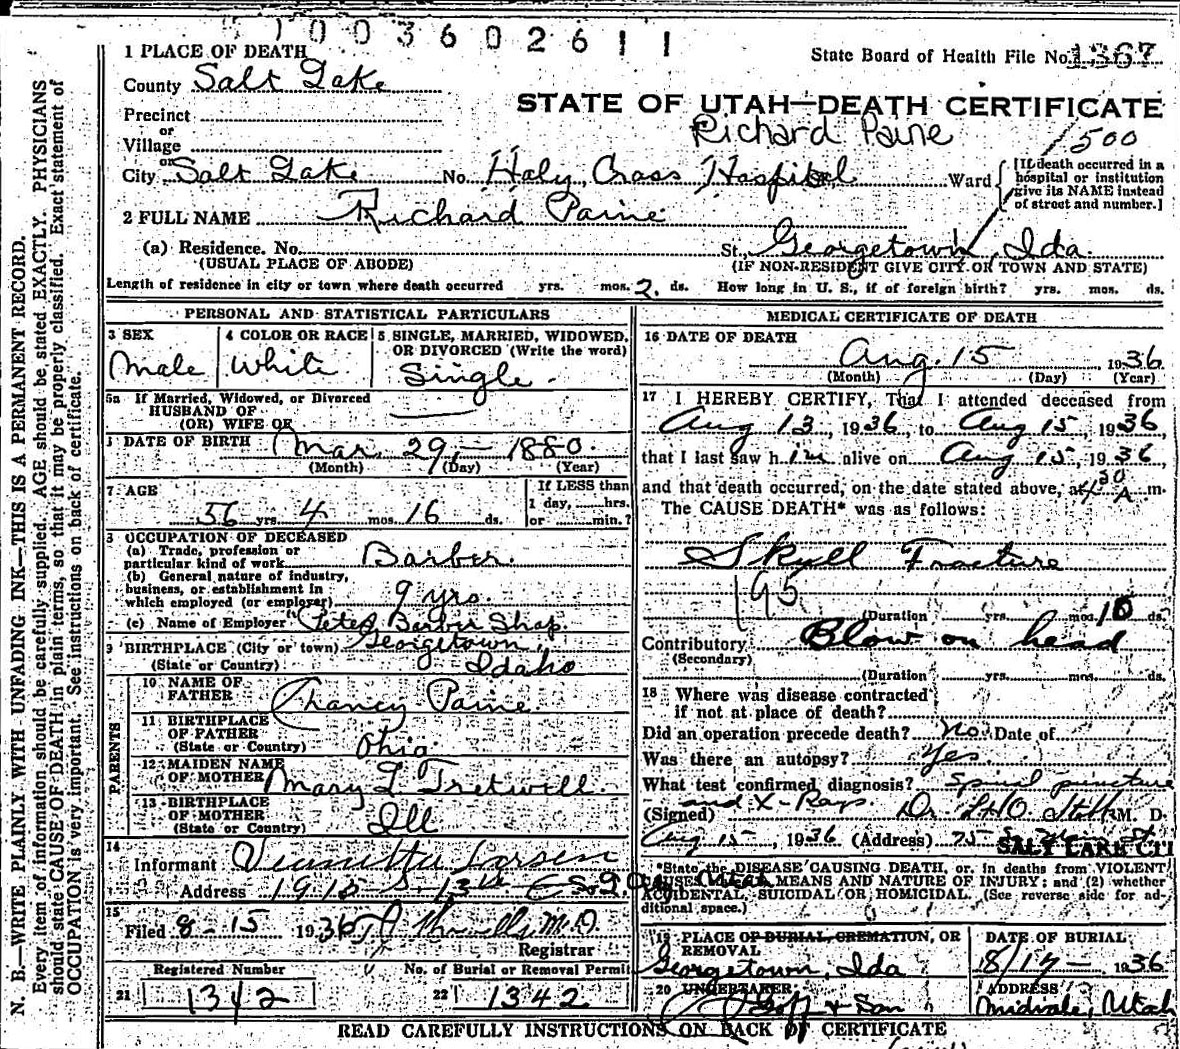 1003602611
State Board of Health File No. 1367
1 PLACE OF DEATH
County Salt Lake
STATE OF UTAH—DEATH CERTIFICATE
Precinct
or
Village
or
Richard Paine
1500
City Salt Lake No. Holy Cross Hospital Ward
[If death occurred in a hospital or institution give its NAME instead of street and number.]
2 FULL NAME Richard Paine
(a) Residence. No. St., Georgetown, Ida.
(USUAL PLACE OF ABODE) (IF NON-RESIDENT GIVE CITY OR TOWN AND STATE)
Length of residence in city or town where death occurred yrs. mos. 2 ds. How long in U. S., if of foreign birth? yrs. mos. ds.
PERSONAL AND STATISTICAL PARTICULARS
3 SEX
Male
4 COLOR OR RACE
White
5 SINGLE, MARRIED, WIDOWED, OR DIVORCED (Write the word)
Single
5a If Married, Widowed, or Divorced
HUSBAND OF
(OR) WIFE OF
DATE OF BIRTH Mar. 29, 1880.
(Month) (Day) (Year)
7 AGE
56 yrs. 4 mos. 16 ds.
If LESS than
1 day, hrs.
or min.?
8 OCCUPATION OF DECEASED
(a) Trade, profession or
particular kind of work Barber.
(b) General nature of industry,
business, or establishment in
which employed (or employer) 9 yrs.
(c) Name of Employer Petes Barber Shop.
9 BIRTHPLACE (City or town) Georgetown,
(State or Country) Idaho
PARENTS
10 NAME OF
FATHER Chancy Paine
11 BIRTHPLACE
OF FATHER
(State or Country) Ohio
12 MAIDEN NAME
OF MOTHER Mary L Tretwill
13 BIRTHPLACE
OF MOTHER
(State or Country) Ill
14
Informant Larsen
Address 1915 S. 13th E
15
Filed 8-15 1936 M.D.
Registrar
Registered Number
21 1342
No. of Burial or Removal Permit
22 1342
MEDICAL CERTIFICATE OF DEATH
16 DATE OF DEATH
Aug. 15 1936
(Month) (Day) (Year)
17 I HEREBY CERTIFY, That I attended deceased from
Aug 13, 1936, to Aug 15, 1936,
that I last saw him alive on Aug 15, 1936,
and that death occurred, on the date stated above, at 4 30 A m.
The CAUSE DEATH* was as follows:
Skull Fracture
195
(Duration) yrs. mos. 10 ds.
Contributory Blow on head
(Secondary)
(Duration) yrs. mos. ds.
18 Where was disease contracted
if not at place of death?
Did an operation precede death? No. Date of
Was there an autopsy? Yes
What test confirmed diagnosis? Spinal puncture
and X-Rays.
(Signed) Dr. M. D.
Aug 15, 1936 (Address) 75 So Main St
SALT LAKE CITY
*State the DISEASE CAUSING DEATH, or, in deaths from VIOLENT
CAUSES, MEANS AND NATURE OF INJURY; and (2) whether
ACCIDENTAL, SUICIDAL OR HOMICIDAL. (See reverse side for additional space.)
19 PLACE OF BURIAL, CREMATION, OR
REMOVAL
Georgetown, Ida
DATE OF BURIAL
8/17 1936
20 UNDERTAKER
Goff & Son
ADDRESS
Midvale, Utah
READ CAREFULLY INSTRUCTIONS ON BACK OF CERTIFICATE
N. B.—WRITE PLAINLY WITH UNFADING INK—THIS IS A PERMANENT RECORD.
Every item of information should be carefully supplied. AGE should be stated EXACTLY. PHYSICIANS
should state CAUSE OF DEATH in plain terms, so that it may be properly classified. Exact statement of
OCCUPATION is very important. See instructions on back of certificate.